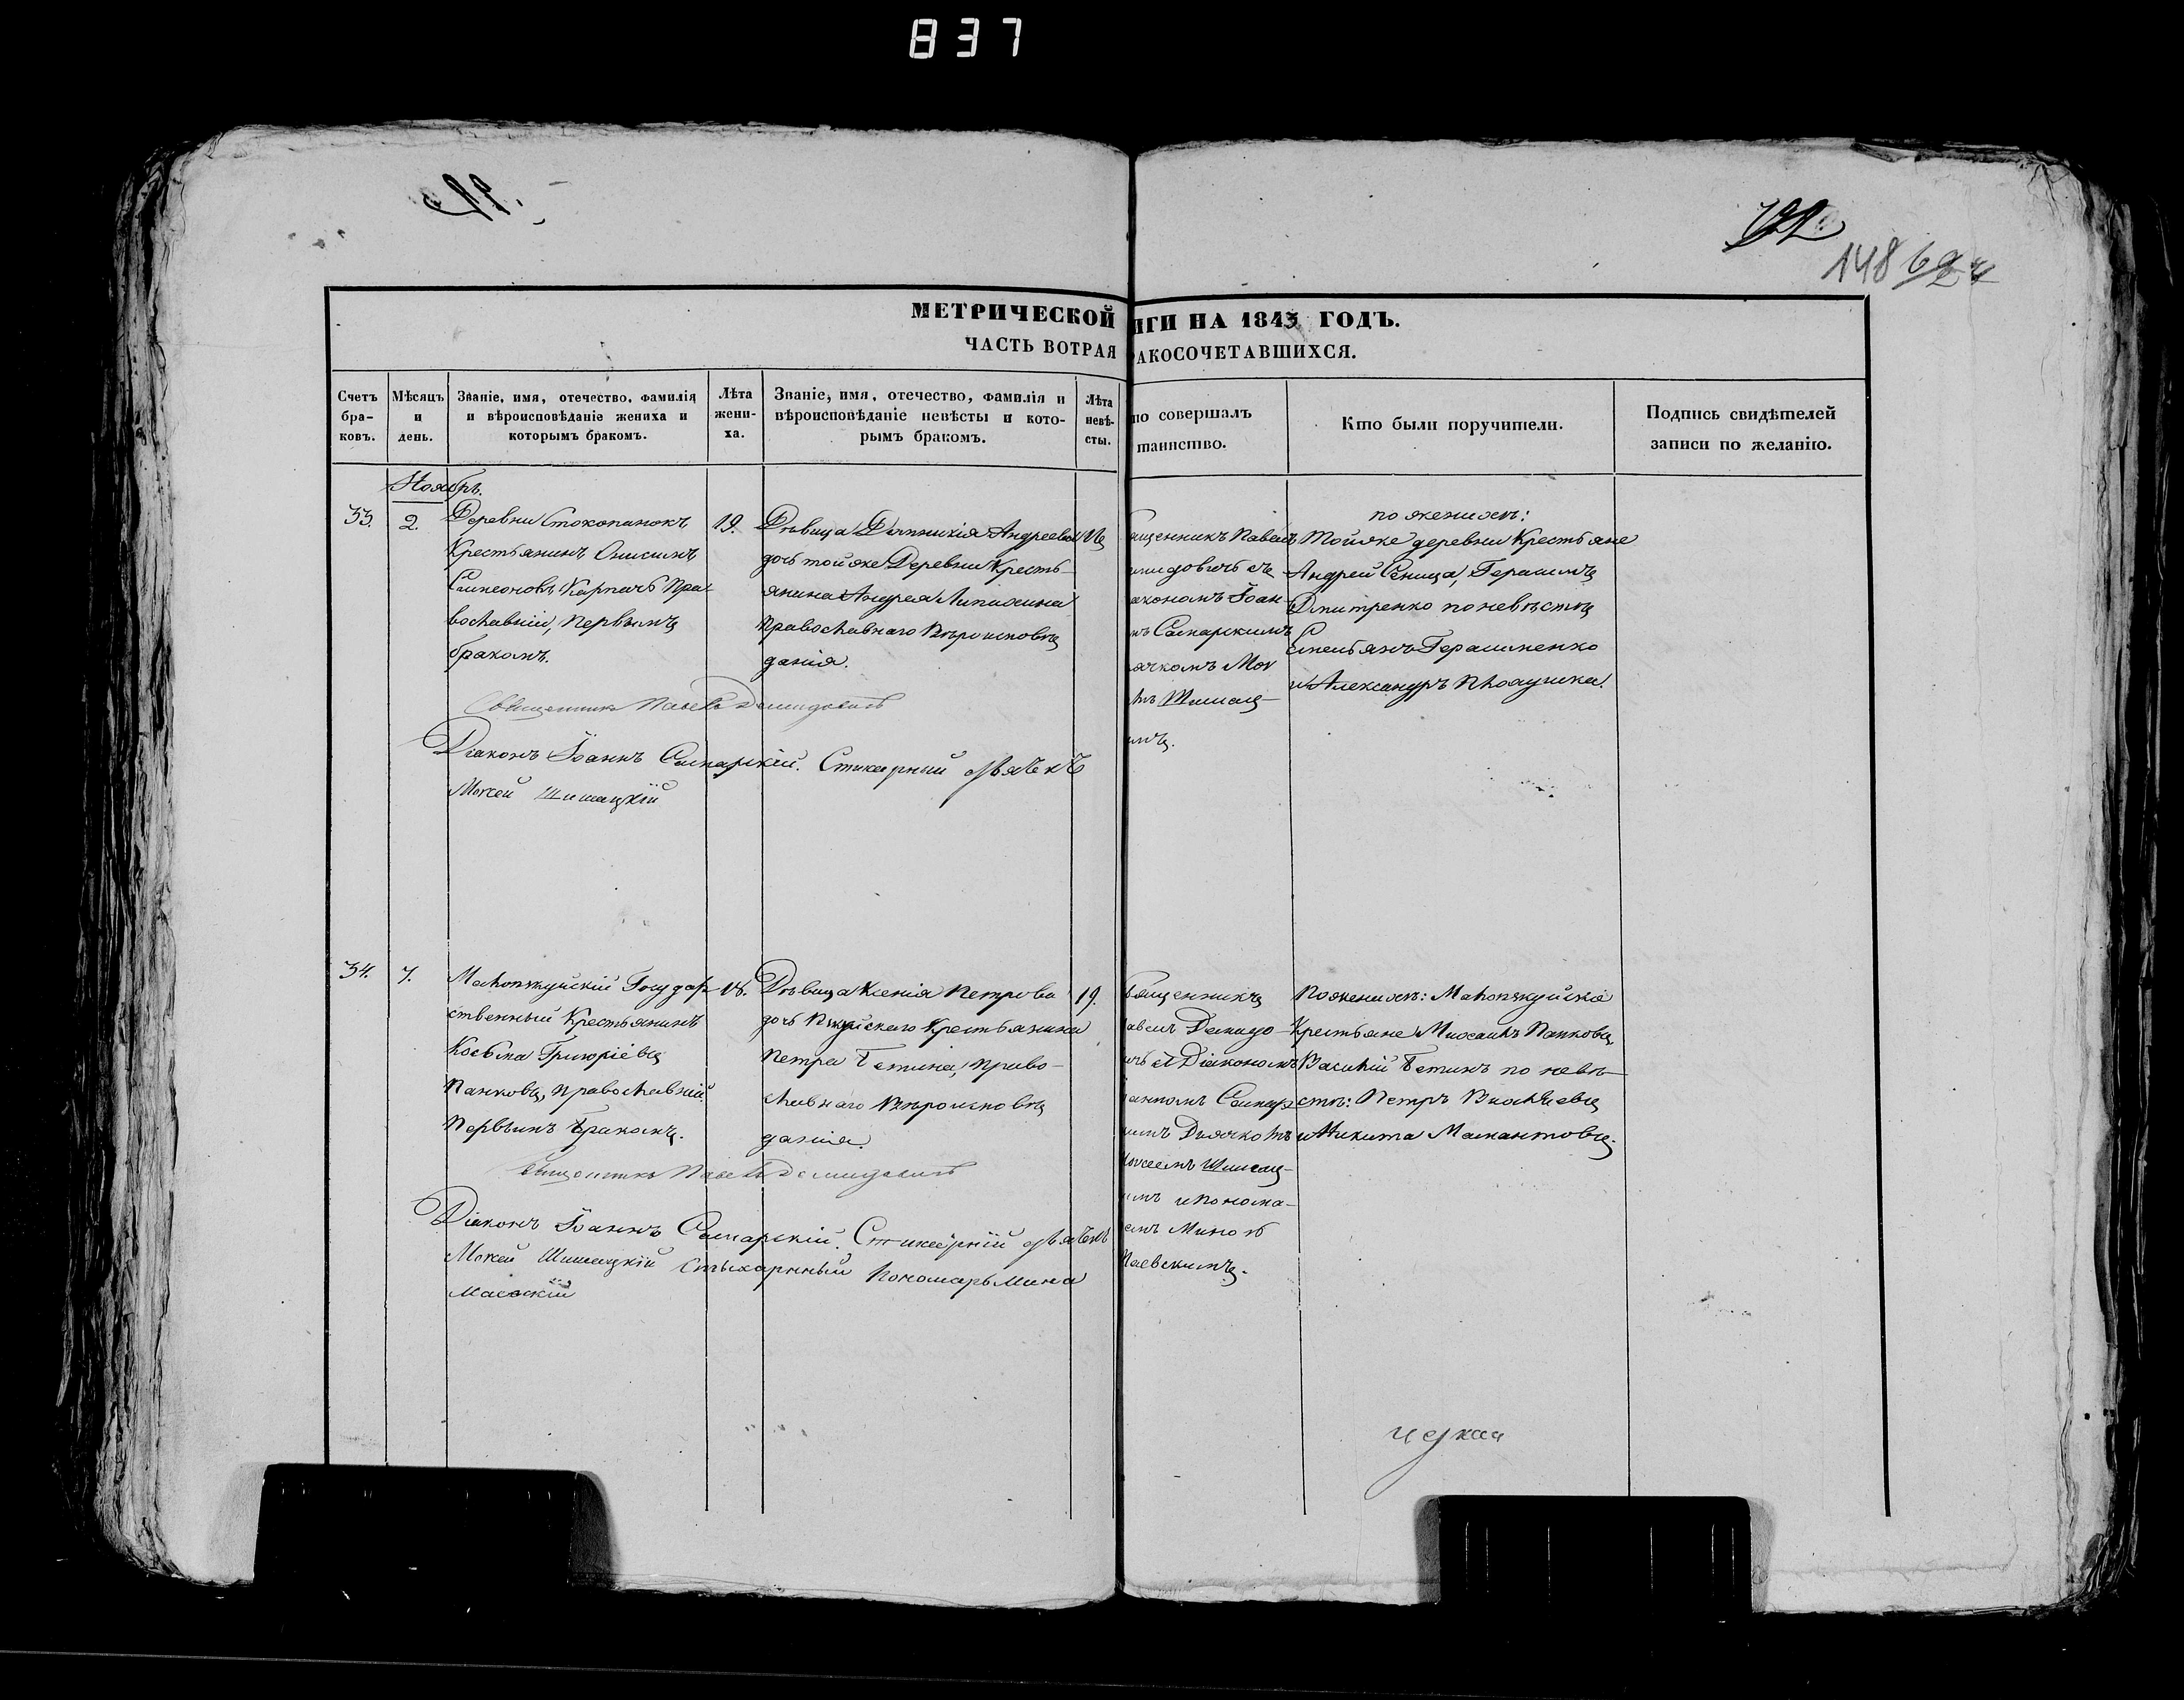 837
148
МЕТРИЧЕСКОЙ ИГИ НА 1843 ГОДЪ.
ЧАСТЬ ВОТРАЯ АКОСОЧЕТАВШИХСЯ.
Счетъ бра-ковъ.
Мѣсяцъ и день.
Званіе, имя, отечество, фамилія и вѣроисповѣданіе жениха и которымъ бракомъ.
Лѣта жени-ха.
Званіе, имя, отечество, фамилія и вѣроисповѣданіе невѣсты и кото-рымъ бракомъ.
Лѣта невѣ-сты.
то совершалъ таинство.
Кто были поручители.
Подпись свидѣтелей записи по желанію.
Ноябрь.
33.
2.
Деревни Стокопанокъ
Крестьянинъ Онисимъ
Симеоновъ Карпачъ Пра-
вославный, первымъ
бракомъ.
19.
Дѣвица Андреева
дочь той же Деревни Кресть-
янина Андрея
православнаго Вѣроисповѣ
данія.
ященникъ Павелъ
мидовичь съ
акономъ Іоан-
мъ Самарскимъ
ячкомъ Мок
Шишац-
имъ.
по женихѣ:
Той же деревни Крестьяне
Андрей Сеница, Герасимъ
Дмитренко по невѣстѣ
Емельянъ Герасименко
и Александръ
Священникъ Павелъ Демидовичъ
Діаконъ Іоаннъ Самарскій. Стихарный дьячекъ
Мокей Шишацкій
34.
7.
Государ-
ственный Крестьянинъ
Косьма Григоріевъ
Панковъ, православный
Первымъ бракомъ.
18.
Дѣвица Ксенія Петрова
дочь Крестьянина
Петра Бетина, право-
славнаго Вѣроисповѣ
данія.
19.
вященникъ
авелъ Демидо-
ичъ съ Діакономъ
Самар
имъ Дьячкомъ
Мокеемъ Шишац-
имъ и Понома-
емъ Миною
Маевскимъ.
По женихѣ:
Крестьяне Михаилъ Панковъ,
Василій Бетинъ по невѣ-
стѣ: Петръ
и Никита Мамантовъ.
Священникъ Павелъ Демидовичъ
Діаконъ Іоаннъ Самарскій. Стихарный дьячекъ
Мокей Шишацкій Стихарный Пономарь Мина
Маевскій